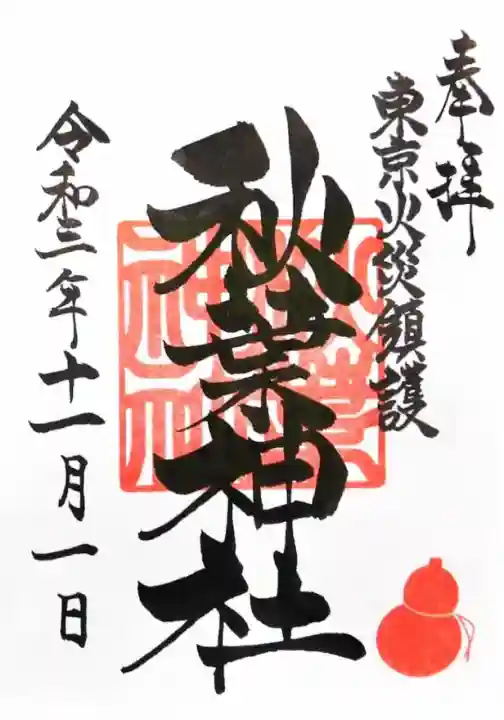 奉拝
東京火災鎮護
秋葉神社
令和三年十一月一日